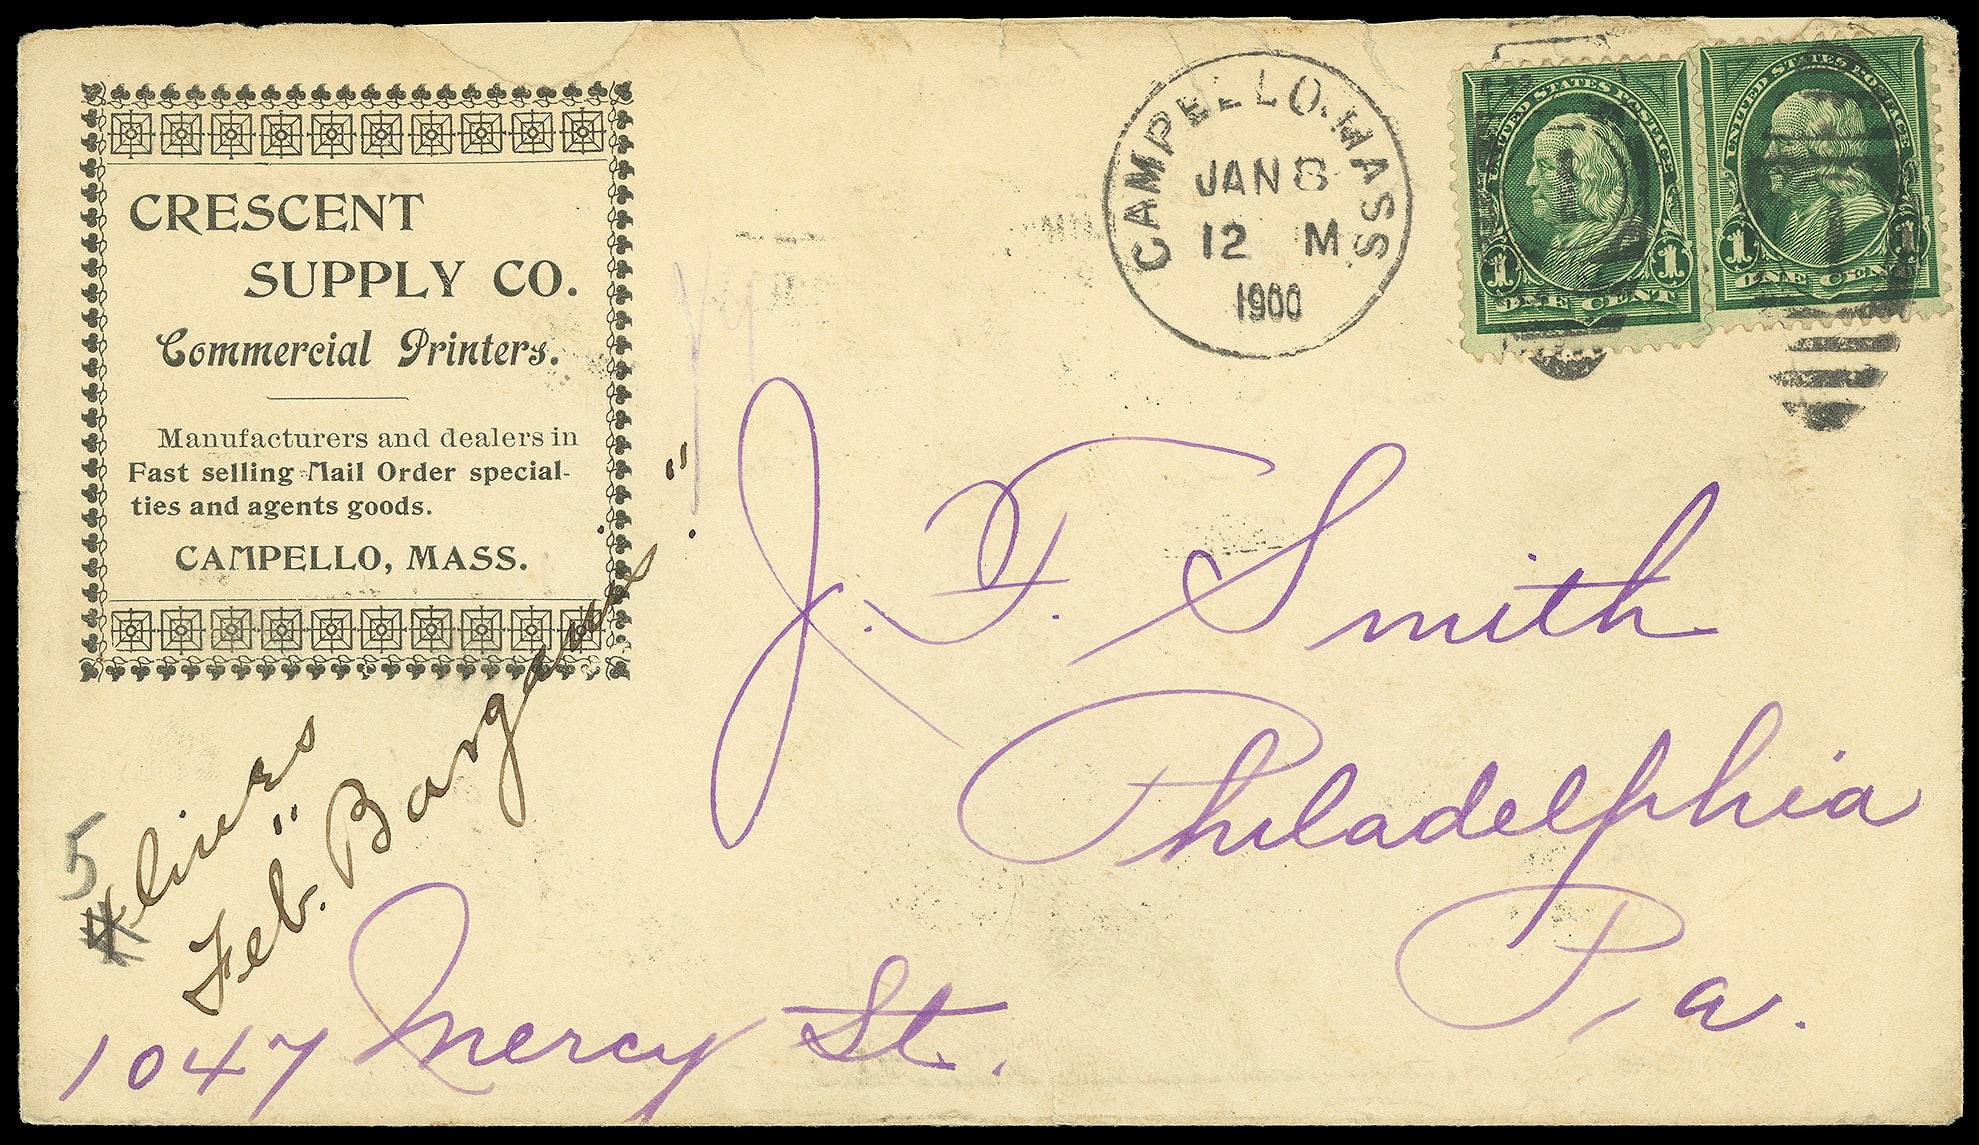 CRESCENT
SUPPLY CO.
Commercial Printers.
Manufacturers and dealers in
Fast selling Mail Order special-
ties and agents goods.
CAMPELLO, MASS.
CAMPELLO, MASS.
JAN 8
12 M
1900
UNITED STATES POSTAGE
1 1
ONE CENT
UNITED STATES POSTAGE
1 1
ONE CENT
J. F. Smith
Philadelphia
Pa.
1047 Mercy St.
5
Feb.